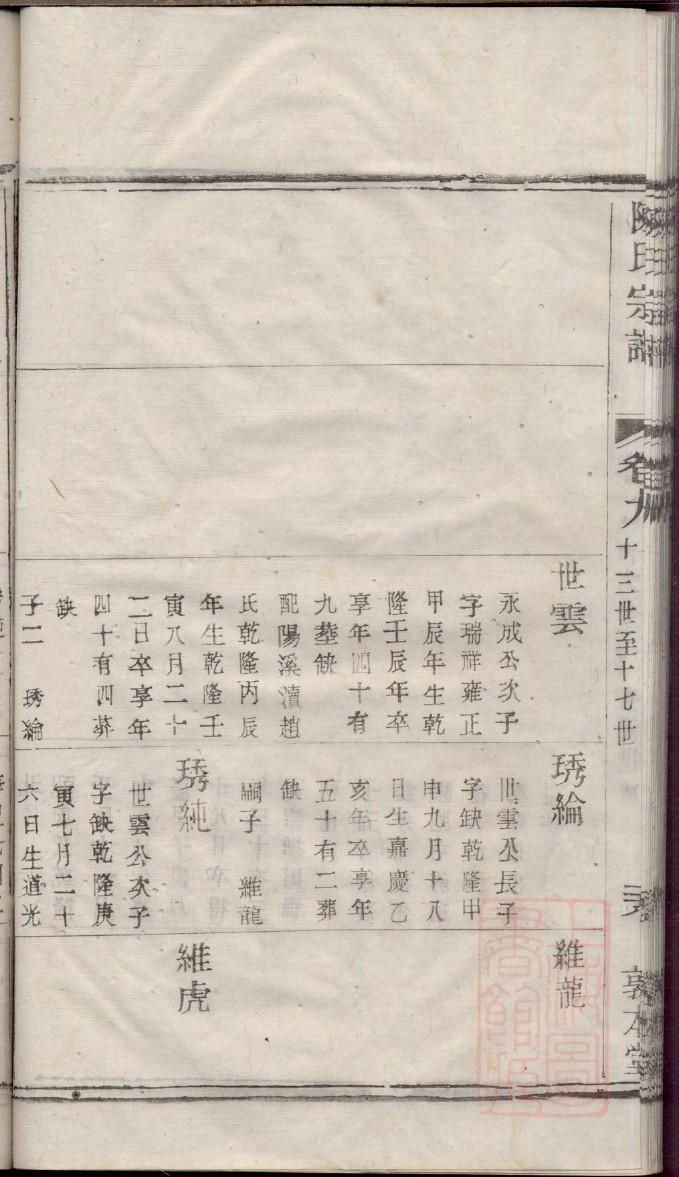 陳氏宗譜
卷九
十三世至十七世
敦本堂
世雲
永成公次子
字瑞祥雍正
甲辰年生乾
隆壬辰年卒
享年四十有
九塟缺
配陽溪瀆趙
氏乾隆丙辰
年生乾隆壬
寅八月二十
二日卒享年
四十有四葬
缺
子二 琇綸
琇綸
世雲公長子
字缺乾隆甲
申九月十八
日生嘉慶乙
亥年卒享年
五十有二葬
缺
嗣子 維龍
琇純
世雲公次子
字缺乾隆庚
寅七月二十
六日生道光
維龍
維虎